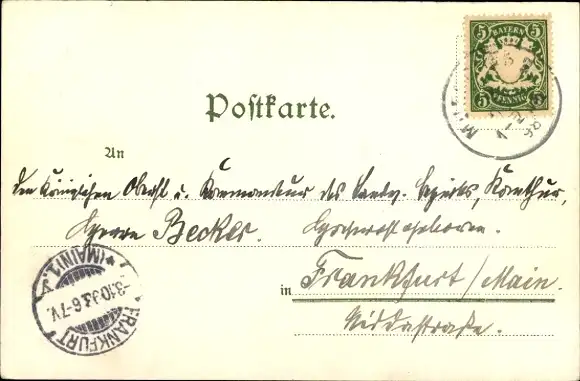 5 BAYERN 5
5 PFENNIG 5
Postkarte.
An
den Königlichen Oberstl. u. Kommandeur des Landw. Bezirks,
Herrn Becker. Hochwohlgeboren.
in Frankfurt/Main.
Niddastraße.
FRANKFURT
*(MAIN)1.*
-3.10.03.6-7V.